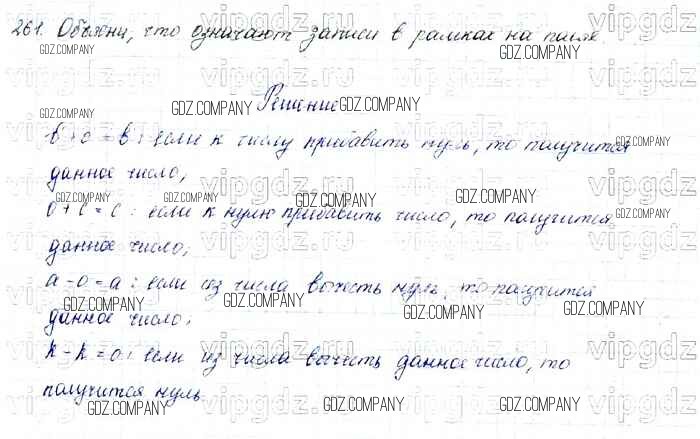 261. Объясни, что означают записи в рамках на полях.
Решение
в + о = в : если к числу прибавить нуль, то получится
данное число;
о + с = с : если к нулю прибавить число, то получится
данное число;
а - о = а : если из числа вычесть нуль, то получится
данное число;
к - к = о : если из числа вычесть данное число, то
получится нуль.
GDZ.COMPANY
vipgdz.ru